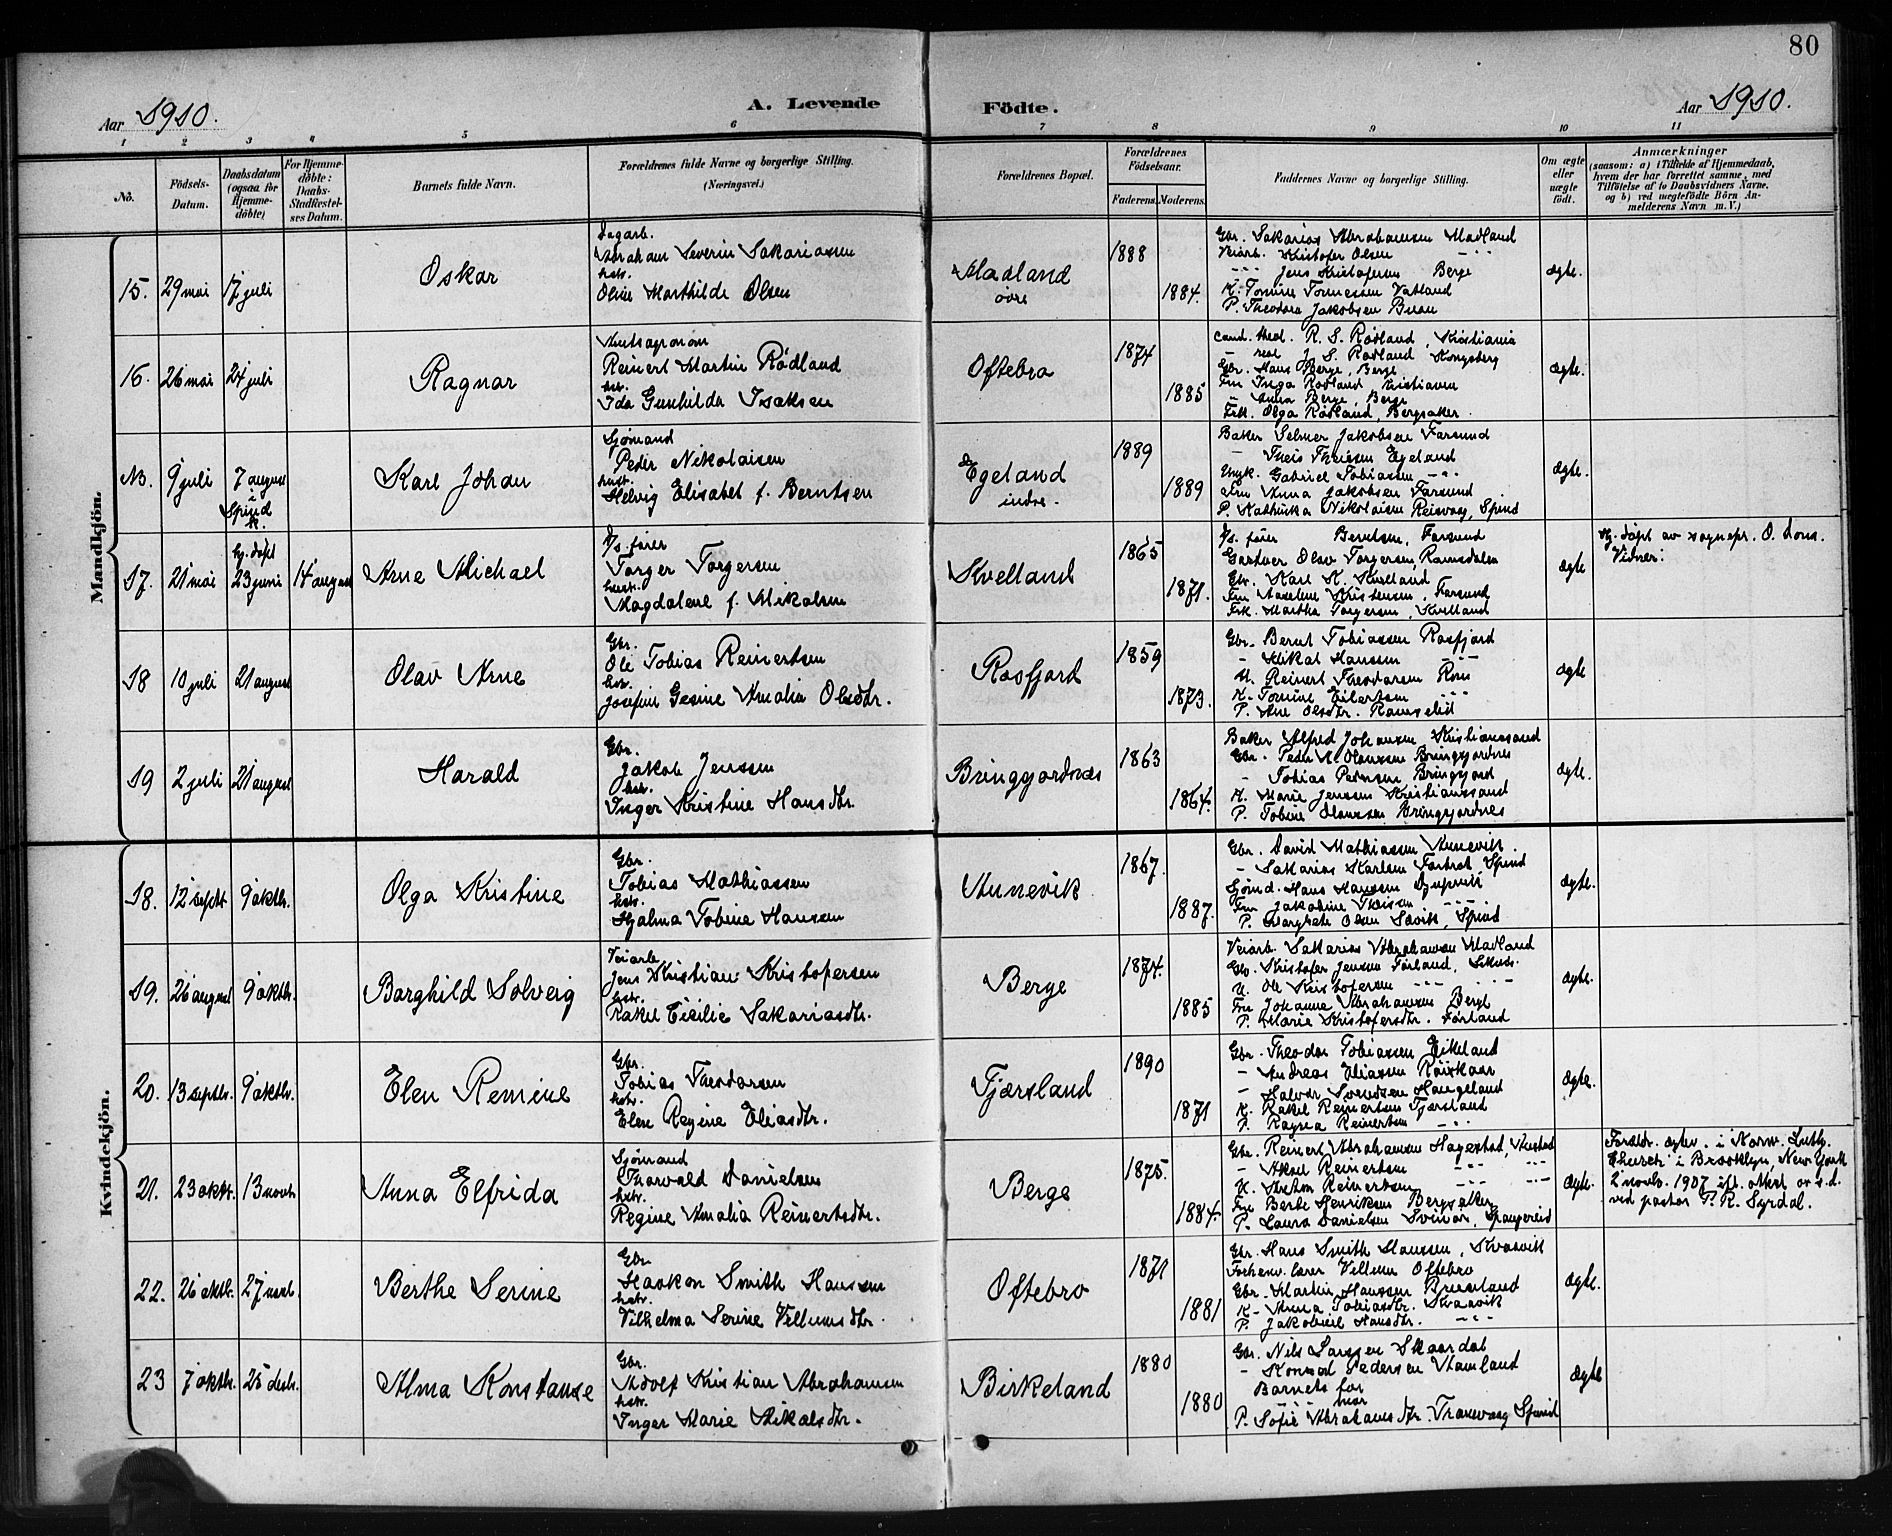 80
Aar 1910.
A. Levende
Födte.
Aar 1910.
1 2 3 4 5 6 7 8 9 10 11
No.
Födsels-Datum.
Daabsdatum (ogsaa for Hjemme-döbte)
For Hjemme-döbte: Daabs-Stadfæstel-ses Datum.
Barnets fulde Navn.
Forældrenes fulde Navne og borgerlige Stilling.
(Næringsvei.)
Forældrenes Bopæl.
Forældrenes Födselsaar.
Faderens.
Moderens.
Faddernes Navne og borgerlige Stilling.
Om ægte eller uægte födt.
Anmærkninger
(saasom: a) i Tilfælde af Hjemmedaab, hvem der har forrettet samme, med Tilföielse af to Daabsvidners Navne, og b) ved uægtefödte Börn An-melderens Navn m. V.)
Mandkjön.
15. 29 mai 17 juli
Oskar
Dagarb.
Abraham Severin Sakariassen
hstr.
Oline Marthilde Olsen
Madland
øvre
1888
1884.
Gbr. Sakarias Abrahamsen Madland
Veiarb. Kristofer Olsen - - -
- - - Jens Kristofersen Berge
K. Tomine Tonnessen Vatland
P. Theodora Jakobsen
ægte.
16. 26 mai 24 juli
Ragnar
Amtsagronom
Reinert Martin Rødland
hstr.
Ida Gunhilda Isaksen
Oftebro
1874
1885
cand. theol. R. S. Rødland, Kristiania
- real J. S. Rødland Kongsberg
Gbr. Hans Berge, Berge
Fru Inga Rødland, Kristiania
- Anna Berge, Berge
Frk. Olga Rødland, Bergsaker.
ægte.
N. 9 juli 7 august i Spind k.
Karl Johan
Sjømand
Peder Nikolaisen
hust.
Helvig Elisabet f. Berntsen
Egeland
indre.
1889
1889
Baker Selmer Jakobsen Farsund
- Theis Theisen Egeland
Ungk. Gabriel Tobiassen - - -
Fru Anna Jakobsen Farsund
P. Kathinka Nikolaisen Spind
ægte.
17. 21 mai hj. døpt 23 juni 14 august
Arne Michael
D/s. fører
Torger Torgersen
hustr.
Magdalene f. Mikalsen
Kvelland
1865
1871.
D/s. fører Berntsen, Farsund
Gartner Olav Torgersen Ramsdalen
Gbr. Karl K. Kvelland
Fru Axeline Kristensen, Farsund
Frk. Martha Torgersen, Kvelland
ægte
hj. døpt av sognepr. O. Dons.
Vidner:
18 10 juli 21 august
Olav Arne
Gbr.
Ole Tobias Reinertsen
hstr.
Josefine Gesine Amalia Olsdtr.
Rosfjord
1859
1873.
Gbr. Bernt Tobiassen Rosfjord
- Mikal Hanssen - - -
U. Reinert Theodorsen
K. Tomine Eilertsen - - -
P. Ane Olsdtr.
ægte
19 2 juli 21 august
Harald
Gbr.
Jakob Jenssen
hstr.
Inger Kristine Hansdtr.
Bringsjordnes
1863
1864.
Baker Alfred Johansen Kristianssand
Gbr. Peder M. Olaussen Bringsjordnes
- Tobias Bringsjord
K. Marie Jenssen Kristianssand
P. Tobine Olaussen Bringsjordnes
ægte.
Kvindekjön.
18. 12 septbr 9 oktbr.
Olga Kristine
Gbr.
Tobias Mathiassen
hstr.
Hjalma Tobine Hansen
Aunevik
1867.
1887.
Gbr. David Mathiassen Aunevik.
- Sakarias Karlsen Spind
Sjømd. Hans Hanssen
Fru Jakobine Theisen - - -
P. Margrete Olsen Spind
ægte.
19. 26 august 9 oktbr.
Borghild Solveig
Veiarb.
Jens Kristian Kristofersen
hstr.
Rakel Cicilie Sakariasdtr.
Berge
1874.
1885
Veiarb. Sakarias Abrahamsen Madland
Gbr. Kristofer Jensen Førland,
U. Ole Kristofersen - - -
Fru Johanne Abrahamsen Berge
P. Marie Kristofersdtr. Førland
ægte.
20. 13 septbr. 9 oktbr.
Elen Remine
Gbr.
Tobias Theodorsen
hstr.
Elen Regine Eliasdtr.
Tjørsland
1890
1871
Gbr. Theodor Tobiassen Eikeland
- Andreas Eliassen
- Halvor Svendsen Haugeland
K. Rakel Reinertsen Tjørsland
P. Reinertsen - - -
ægte.
21. 23 oktbr. 13 novbr.
Anna Elfrida
Sjømand
Thorvald Danielsen
hstr.
Regine Amalia Reinertsdtr.
Berge
1875.
1884.
Gbr. Reinert Abrahamsen Hagestad,
- Aksel Reinertsen - - -
U. Anton Reinertsen - - -
Fru Berte Henriksen Bergsaker
P. Laura Danielsen Svinør, Spangereid
ægte.
Forældr. ægtev. i Norw. Luth.
Church i Brooklyn, New York
2 novb. 1907 ifl. attest av s.d.
ved pastor T. R. Syrdal.
22. 26 oktbr. 27 novb.
Berthe Serine
Gbr
Haakon Smith Hanssen
hstr.
Vilhelma Serine Villumsdtr.
Oftebro
1871
1881
Gbr. Hans Smith Hanssen, Kvavik
Forhenv. lærer Villum Oftebro
Gbr. Martin Hanssen
K. Anna Tobiasdtr. Kvaavik
P. Jakobine Hansdtr. - - -
ægte.
23 7 oktbr. 25 desbr.
Alma Konstanse
Gbr.
Adolf Kristian Abrahamsen
hstr.
Inger Marie Mikalsdtr.
Birkeland
1880
1880
Gbr. Nils Larssen Skaardal
- Konrad Pedersen
Barnets far
- - - mor
P. Sofie Abrahamsdtr. Spind
ægte